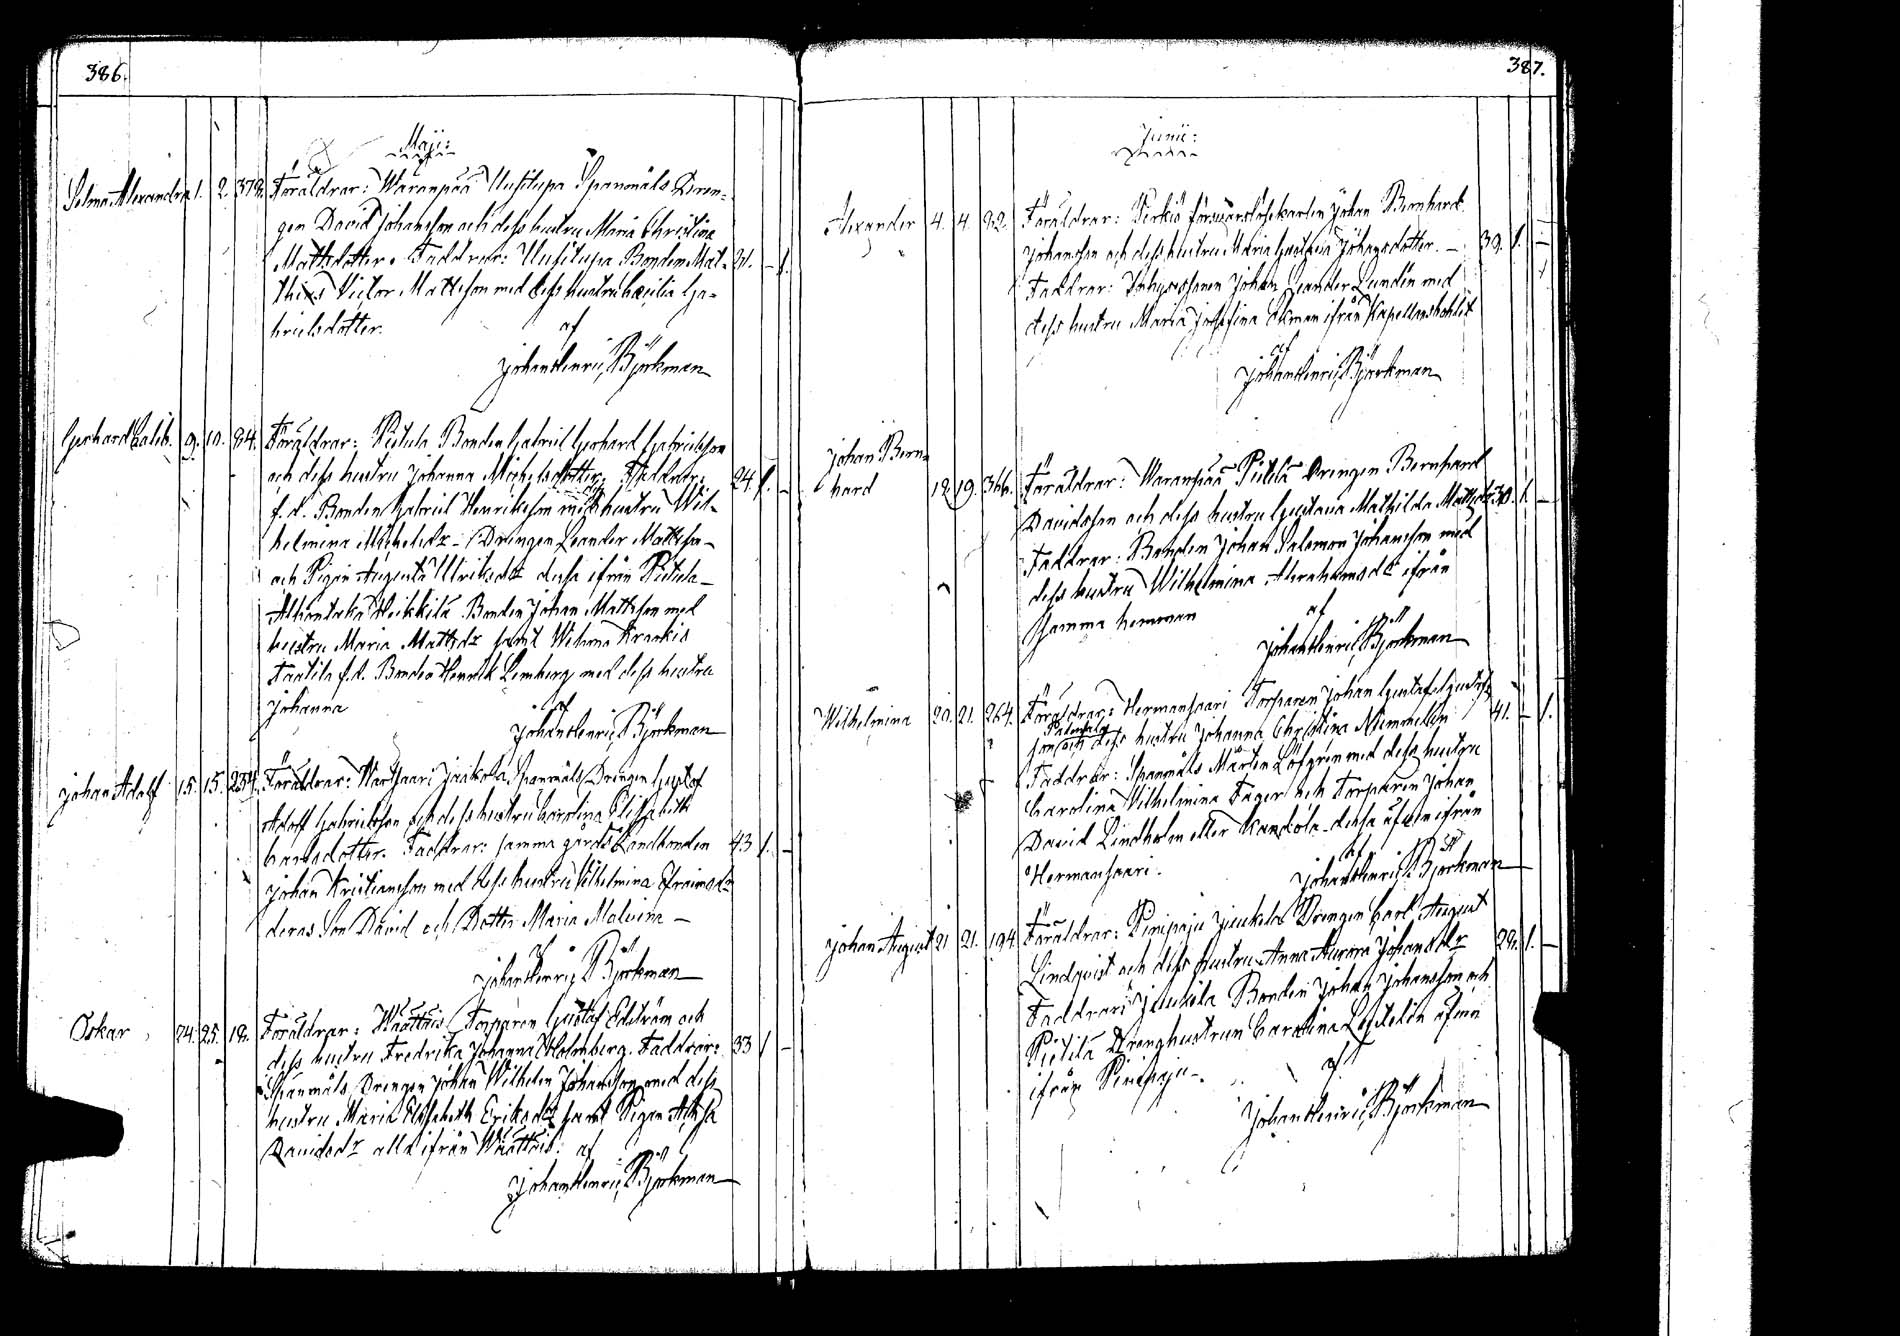 386.
Maji:
Selma Alexandra 1. 2. 378. Föräldrar: Waranpää Uusitupa Spanmåls Dren-
gen David Johansson och dess hustru Maria Christina
Mattsdotter. Faddrar: Uusitupa Bonden Mat- 31. - 1.
thias Victor Mattsson med dess hustru Cæcilia Ga-
brielsdotter. af
Johan Henric Björkman
Gerhard Caleb. 9. 10. 84. Föräldrar: Pietula Bonden Gabriel Gerhard Gabrielsson
och dess hustru Johanna Michelsdotter. Faddrar: 24. 1. -
f. d. Bonden Gabriel Henriksson med hustru Wil-
helmina Michelsdr - Drengen Leander Mattsson -
och Pigan Augusta Ulriksdr dessa ifrån Pietula -
Heikkilä Bonden Johan Mattsson med
hustru Maria Mattsdr samt Wehmo
f.d. Bonden Henrik Lemberg med dess hustru
Johanna af
Johan Henric Björkman
Johan Adolf 15. 15. 234. Föräldrar: Wartsaari Jaakola Spanmåls Drengen Gustaf
Adolf Gabrielsson och dess hustru Carolina Elisabeth
Carlsdotter. Faddrar: samma gårds Landbonden 43 1. -
Johan Kristiansson med dess hustru Wilhelmina Efraimsdr
deras Son David och Dotter Maria Malvina -
af
Johan Henric Björkman
Oskar 24. 25. 18. Föräldrar: Torparen Gustaf Edström och
dess hustru Fredrika Johanna Holmberg. Faddrar: 33 1 -
Spanmåls Drengen Johan Wilhelm Johansson med dess
hustru Maria Elisabeth Eriksdr samt Pigan
Davidsdr alla ifrån af
Johan Henric Björkman
387.
Junii:
Alexander 4. 4. 82. Föräldrar: Johan Bernhard
Johansson och dess hustru Maria Gustava Johansdotter. - 39. 1. -
Faddrar: Inhysessonen Johan Leander Lundén med
dess hustru Maria Josefina Ekman ifrån Kapellansbohlet
af
Johan Henric Björkman
Johan Bern-
hard 18. 19. 366. Föräldrar: Waranpää Pietilä Drengen Bernhard
Davidsson och dess hustru Gustava Mathilda Mattsdr 30. 1. -
Faddrar: Bonden Johan Salomon Johansson med
dess hustru Wilhelmina Abrahamsdr ifrån
samma hemman af
Johan Henric Björkman
Wilhelmina 20. 21. 264. Föräldrar: Hermansaari Torparen Johan Gustaf Gustafs-
son och dess hustru Johanna Christina Nummelin 41. - 1.
Faddrar: Spanmåls Mårten Löfgren med dess hustru
Carolina Wilhelmina Fager och Torparen Johan
David Lindholm eller Kandola dessa äfven ifrån
Hermansaari. af
Johan Henric Björkman
Johan August 21 21. 194 Föräldrar: Pinipaju Juukola Drengen Carl August
Lindqvist och dess hustru Anna Aurora Johansdr 28. 1. -
Faddrar: Bonden Johan Johansson och
Pietilä Drenghustrun Carolina äfven
ifrån Pinipaju. af
Johan Henric Björkman